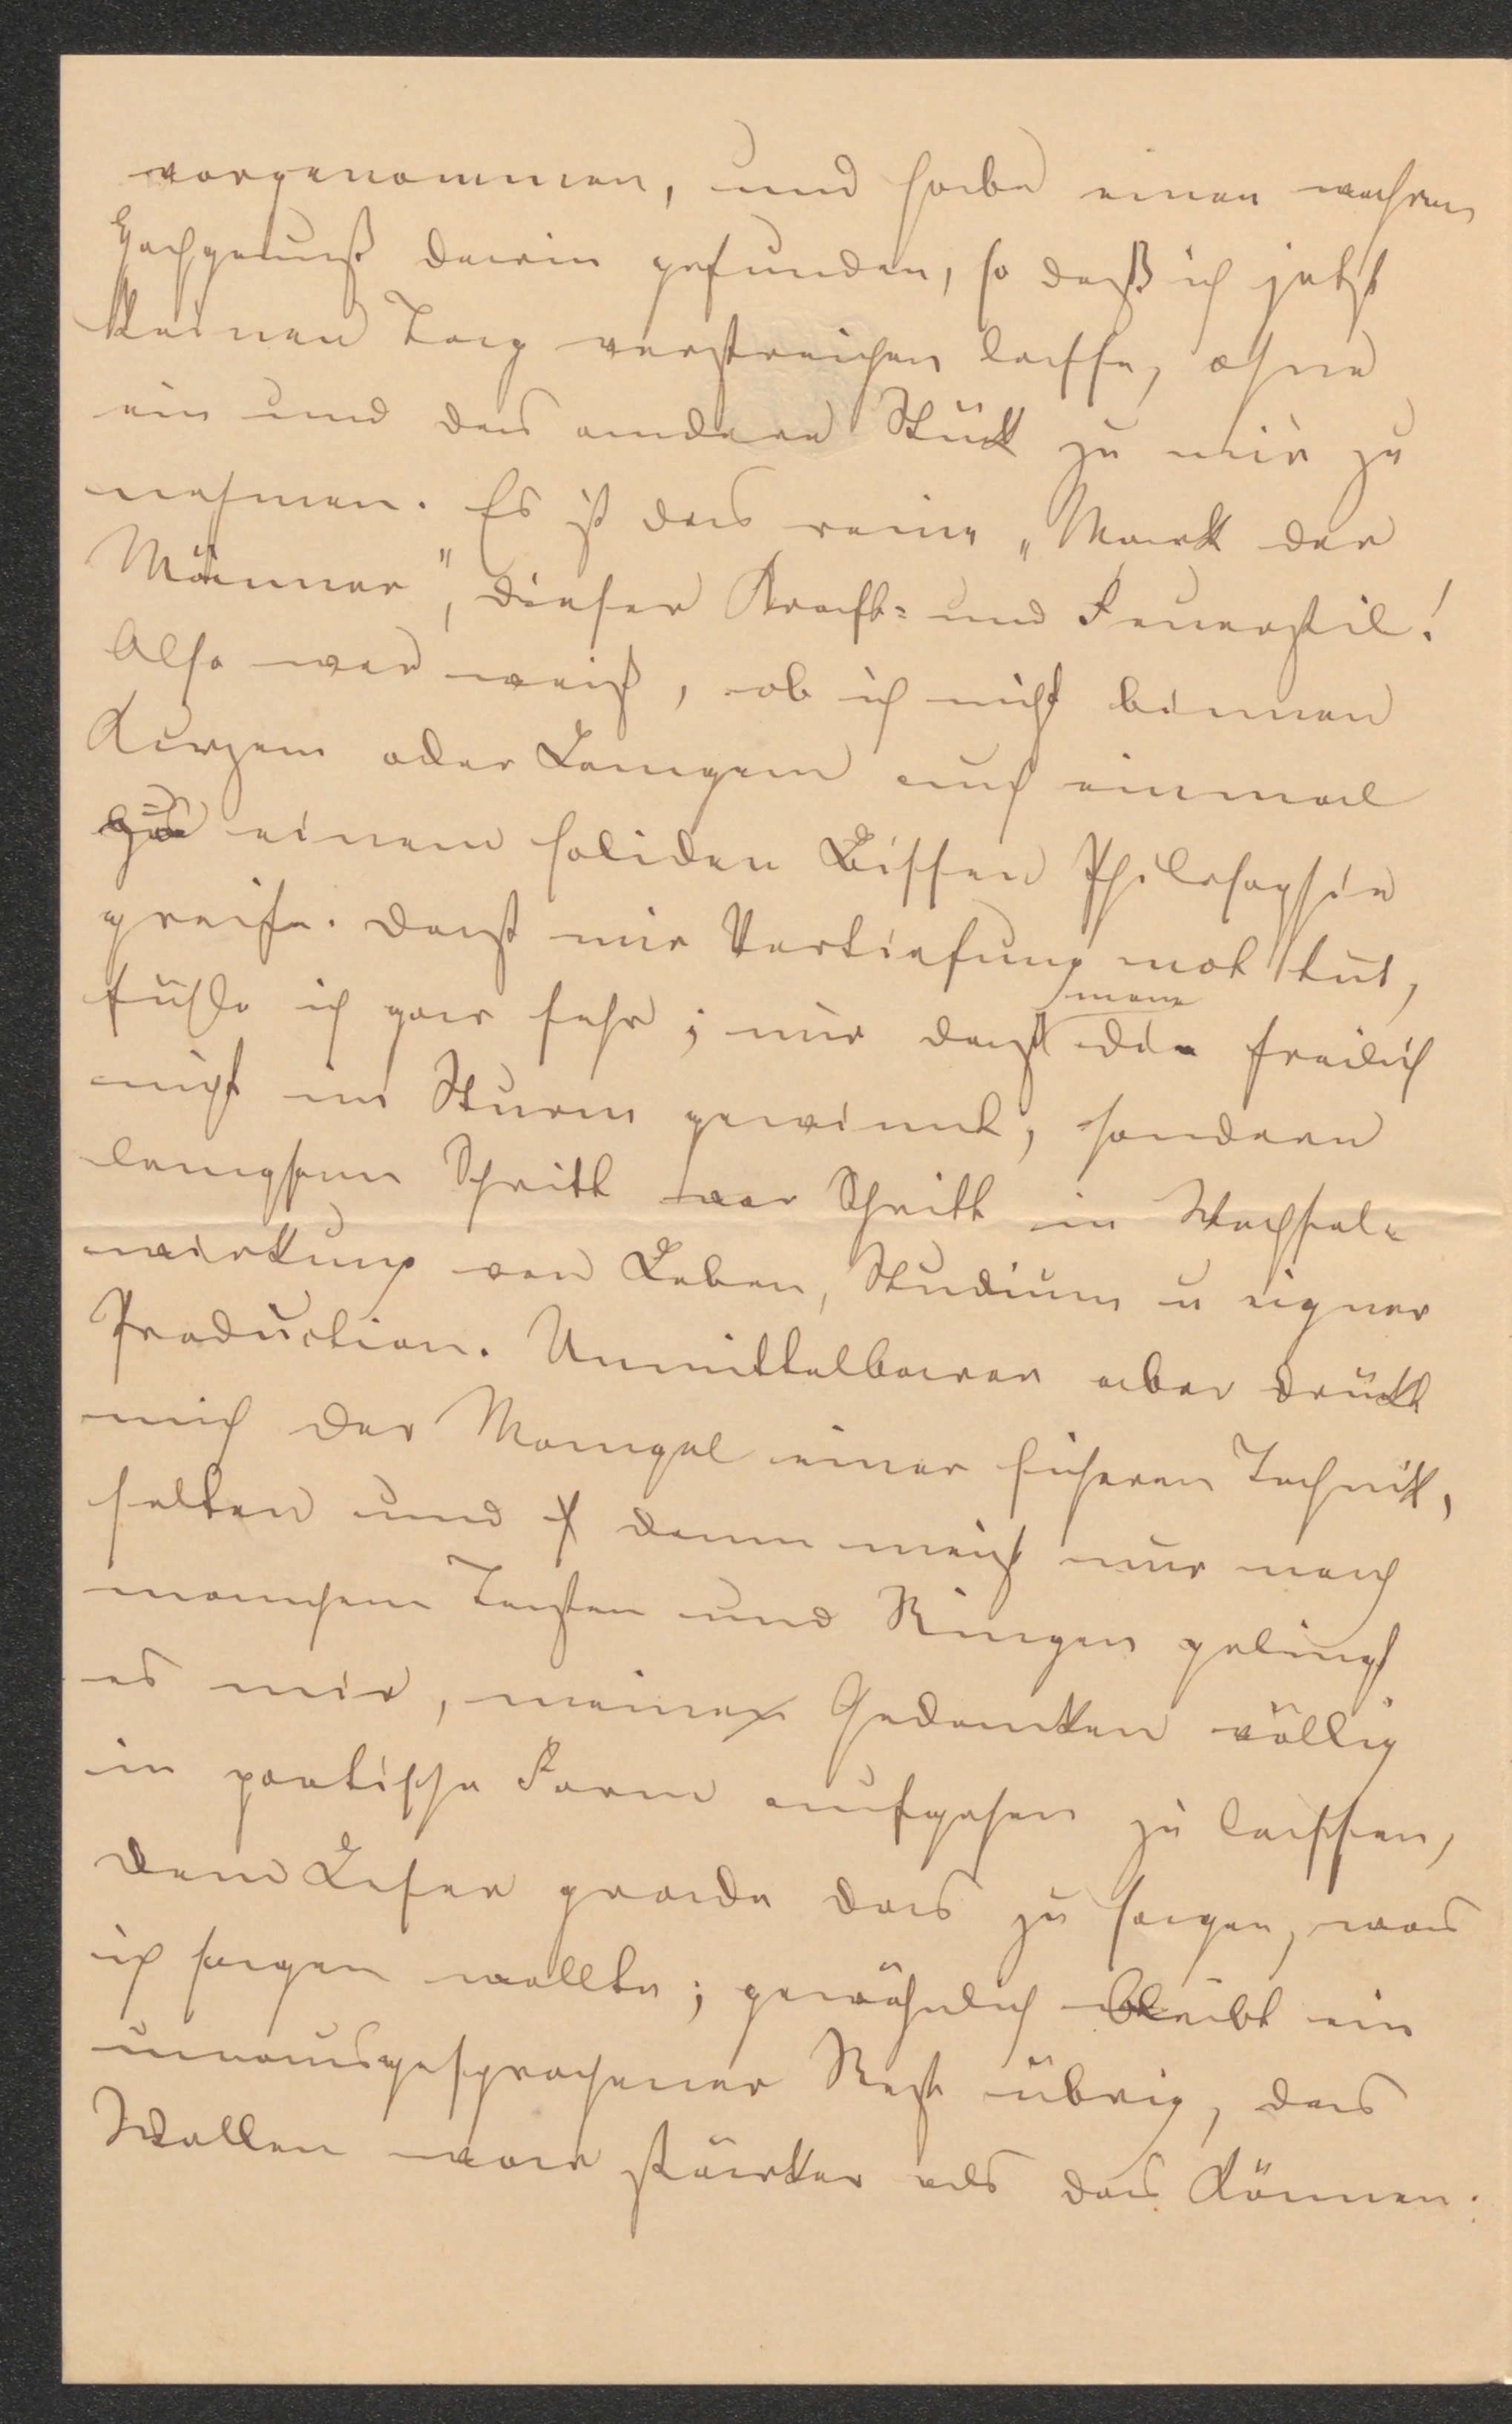 vorgenommen, und habe einen wahren
Hochgenuß darin gefunden, so daß ich jetzt
keinen Tag verstreichen lasse, ohne
ein und das andere Stück zu mir zu
nehmen. Es ist das reine „Mark der
Männer", dieser Kraft- und Feuerstil!
Also wer weiß, ob ich nicht binnen
Kurzem oder Langem auch einmal
zu einem soliden Bissen Philosophie
greife. Daß mir Vertiefung not tut,
fühle ich gar sehr; nur daß man die freilich
nicht im Sturm gewinnt, sondern
langsam Schritt vor Schritt in Wechsel-
wirkung von Leben, Studium u eigner
Production. Unmittelbarer aber drückt
mich der Mangel einer sicheren Technik,
selten und dann meist nur nach
manchem Tasten und Ringen gelingt
es mir, meine Gedanken völlig
in poetische Form aufgehen zu lassen,
dem Leser grade das zu sagen, was
ich sagen wollte; gewöhnlich bleibt ein
unausgesprochener Rest übrig, das
Wollen war stärker als das Können.